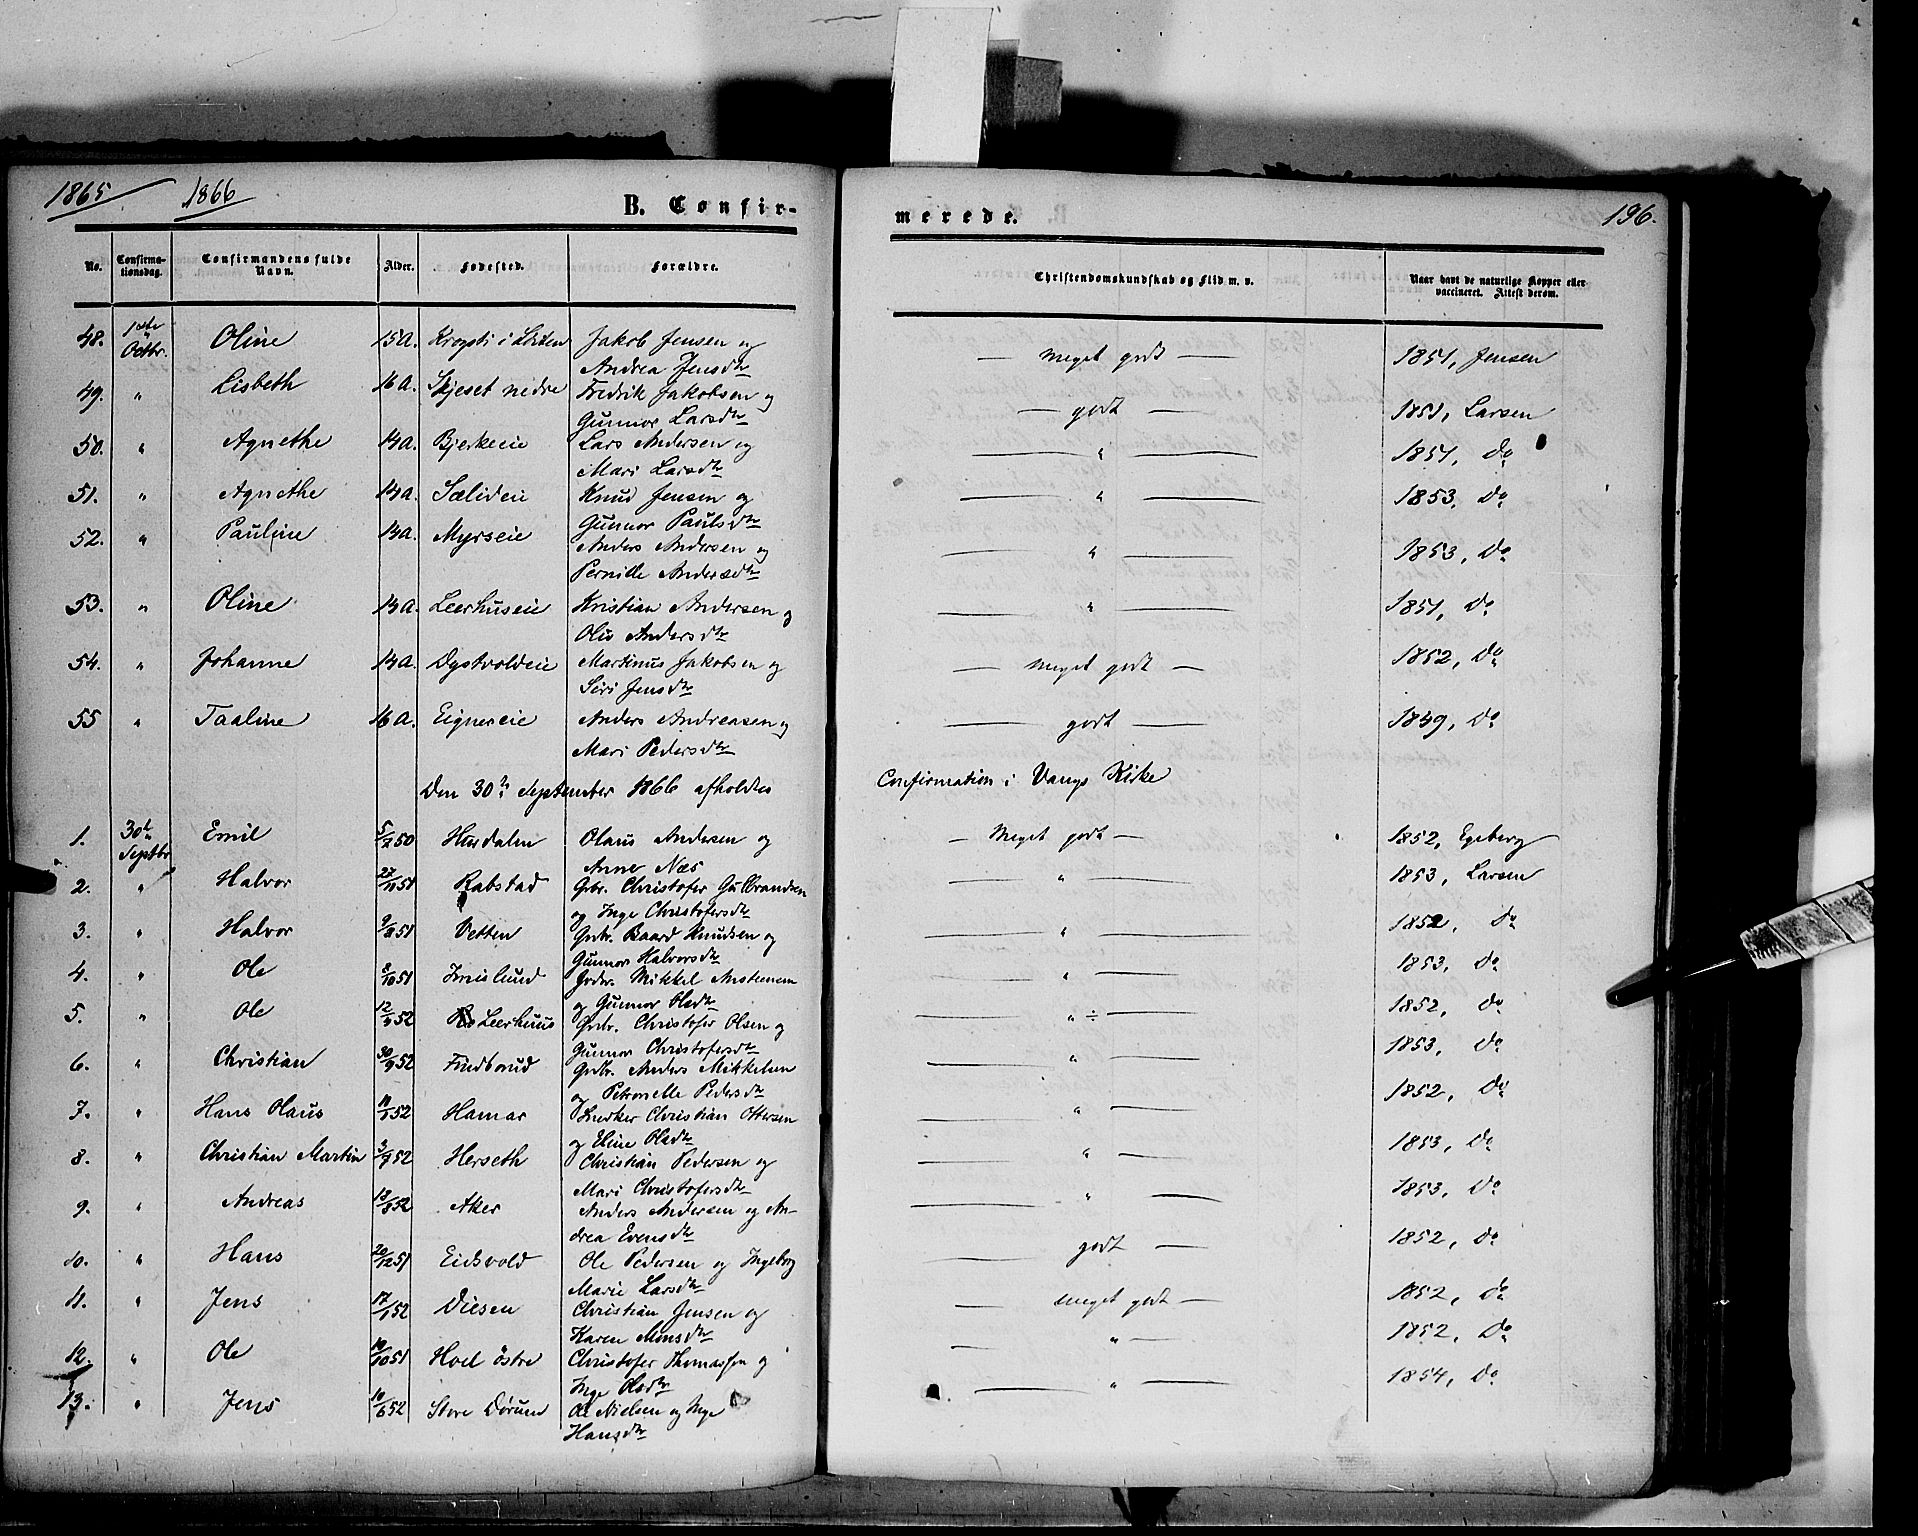 1865 1866 B. Confirmerede. 196.
No. Confirmationsdag. Confirmandens fulde Navn. Alder. Fødested. Forældre. Christendomskundskab og Flid m. v. Naar havt de naturlige Kopper eller vaccineret. Attest derom.
48. 1ste Octbr. Oline 15 A. Krogsti i Løiten Jakob Jensen og Andrea Jensdtr — meget godt — 1851, Jensen
49. " Lisbeth 16 A. Skjeset nedre Fredrik Jakobsen og Gunnor Larsdtr — godt — 1851, Larsen
50. " Agnethe 14 A. Bjerkeeie Lars Andersen og Mari Larsdtr — " — 1851, Do
51. " Agnethe 14 A. Sælideie Knud Jensen og Gunnor Paulsdtr — " — 1853, Do
52. " Pauline 14 A. Myrseie Anders Andersen og Pernille Andersdtr — " — 1853, Do
53. " Oline 14 A. Leerhuseie Kristian Andersen og Oliv Andersdtr — " — 1851, Do
54. " Johanne 14 A. Dystvoldeie Martinus Jakobsen og Siri Jensdtr — meget godt — 1852, Do
55 " Taaline 16 A. Eignereie Anders Andreasen og Mari Pedersdtr — godt — 1849, Do
Den 30te September 1866 afholdtes Confirmation i Vangs Kirke
1. 30te Septbr Emil 5/2 50 Hurdalen Olaus Andersen og Anne Næs — Meget godt — 1852, Egeberg
2. " Halvor 27/11 51 Rabstad Grbr. Christofer Gulbrandsen og Inge Christofersdtr — " — 1853, Larsen
3. " Halvor 9/8 51 Vetten Grbr. Baard Knudsen og Gunnor Halvorsdtr — " — 1852, Do
4. " Ole 8/10 51 Imislund Grbr. Mikkel Anstensen og Gunnor Olsdtr — " — 1853, Do
5. " Ole 12/3 52 Leerhuus Grbr. Christofer Olsen og Gunnor Christofersdtr — " ÷ — 1852, Do
6. " Christian 30/9 52 Finborud Grbr. Anders Mikkelsen og Petronelle Pedersdtr — " — 1853, Do
7. " Hans Olaus 11/1 52 Hamar Snedker Christian Ottersen og Eline Olsdtr — " — 1852, Do
8. " Christian Martin 3/7 52 Herseth Christian Pedersen og Mari Christofersdtr — " — 1853, Do
9. " Andreas 18/8 52 Aker Anders Andersen og Andrea Evensdtr — " — 1853, Do
10. " Hans 20/12 51 Eidsvold Ole Pedersen og Ingeborg Marie Larsdtr — godt — 1852, Do
11. " Jens 17/1 52 Diesen Christian Jensen og Karen Monsdtr — meget godt — 1852, Do
12. " Ole 19/10 51 Hoel østre Christofer Thomassen og Inge Olsdtr — " — 1852, Do
13. " Jens 10/6 52 Store Dørum Ole Nielsen og Inge Hansdtr — " — 1854, Do